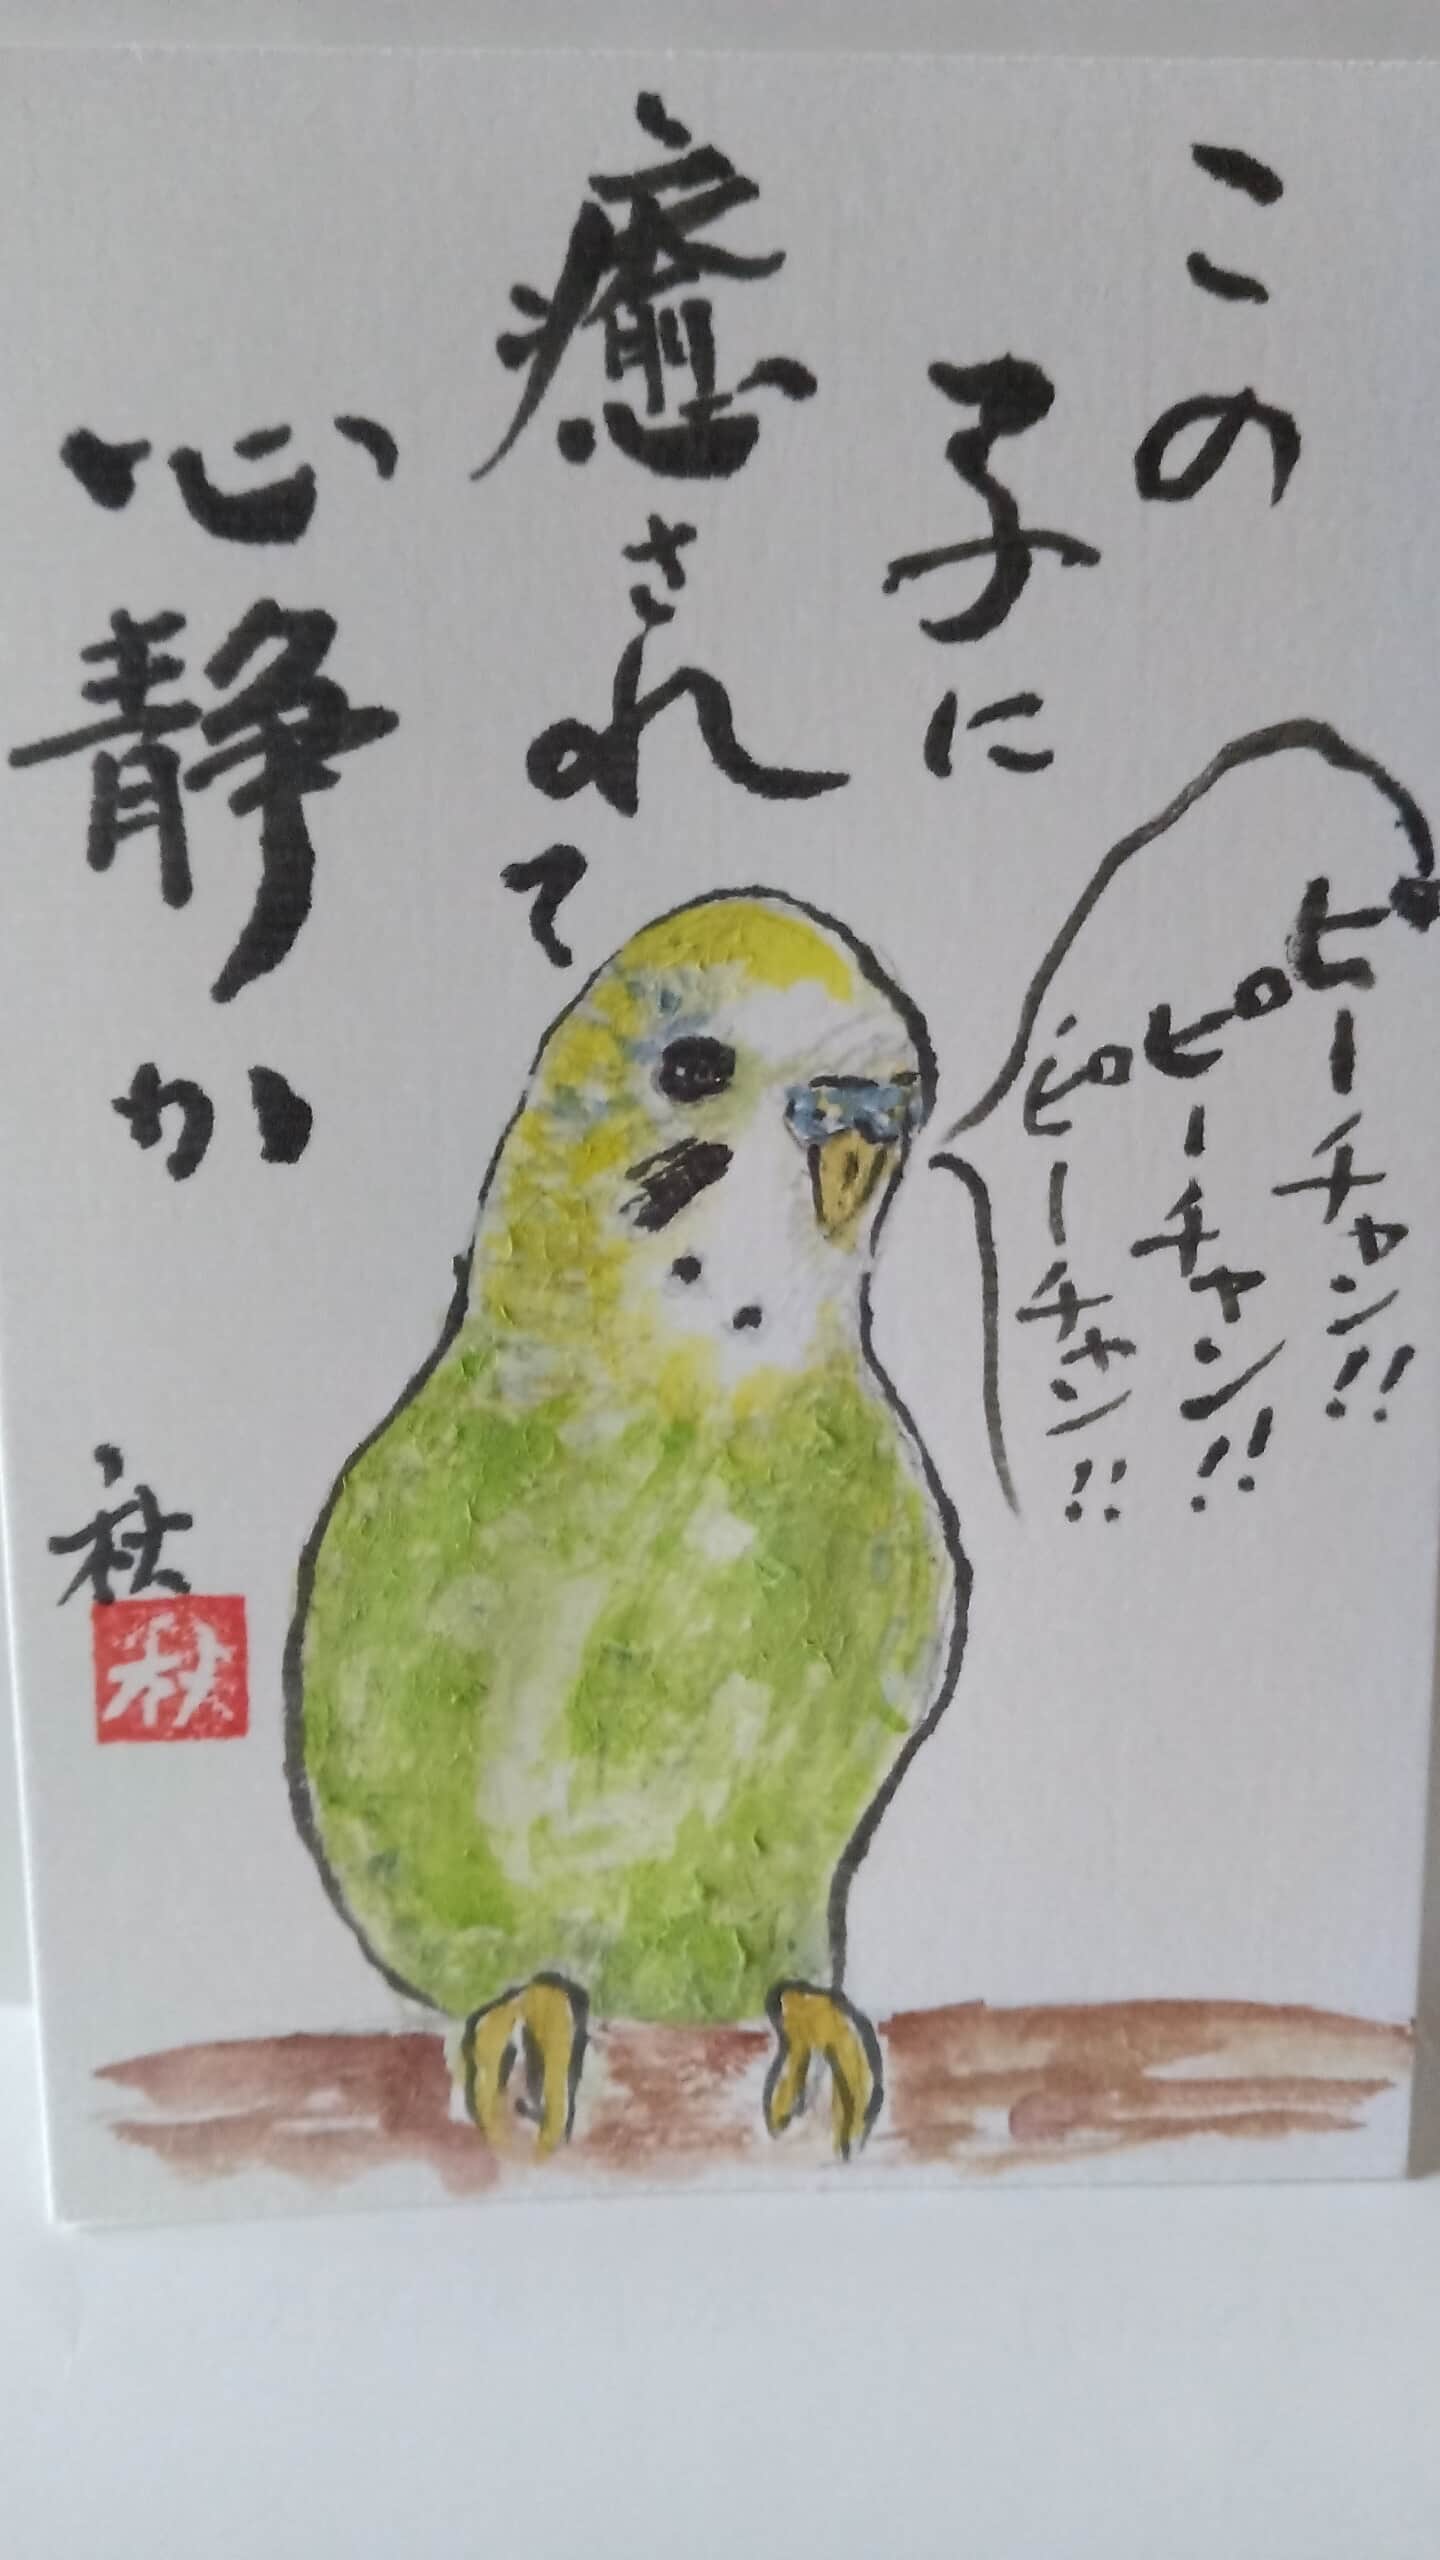 この
子に
癒されて
心静か
ピーチャン!!
ピーチャン!!
ピーチャン!!
秋
秋